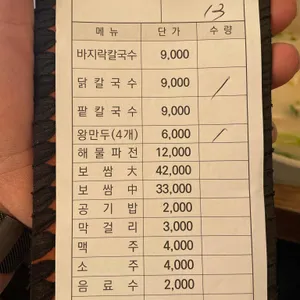 13
메뉴 단가 수량
바지락칼국수 9,000
닭칼국수 9,000 /
팥칼국수 9,000
왕만두(4개) 6,000 /
해물파전 12,000
보쌈 大 42,000
보쌈 中 33,000
공기밥 2,000
막걸리 3,000
맥주 4,000
소주 4,000
음료수 2,000